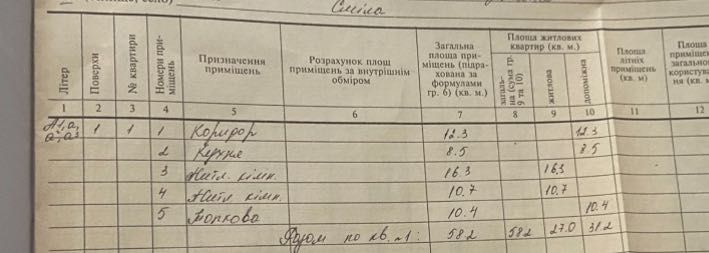 Сміла
Літер | Поверхи | № квартири | Номери приміщень | Призначення приміщень | Розрахунок площ приміщень за внутрішнім обміром | Загальна площа приміщень (підрахована за формулами гр. 6) (кв. м.) | Площа житлових квартир (кв. м.) | загальна (сума гр. 9 та 10) | житлова | допоміжна | Площа літніх приміщень (кв. м) | Площа приміщ загальног користува ня (кв. м
1 2 3 4 5 6 7 8 9 10 11 12
А1, а, 1 1 1 Коридор 12.3 12.3
2 Кухня 8.5 8.5
3 Житл. кімн. 16.3 16.3
4 Житл кімн. 10.7 10.7
5 Топкова 10.4 10.4
Разом по кв. №1: 58.2 58.2 27.0 31.2